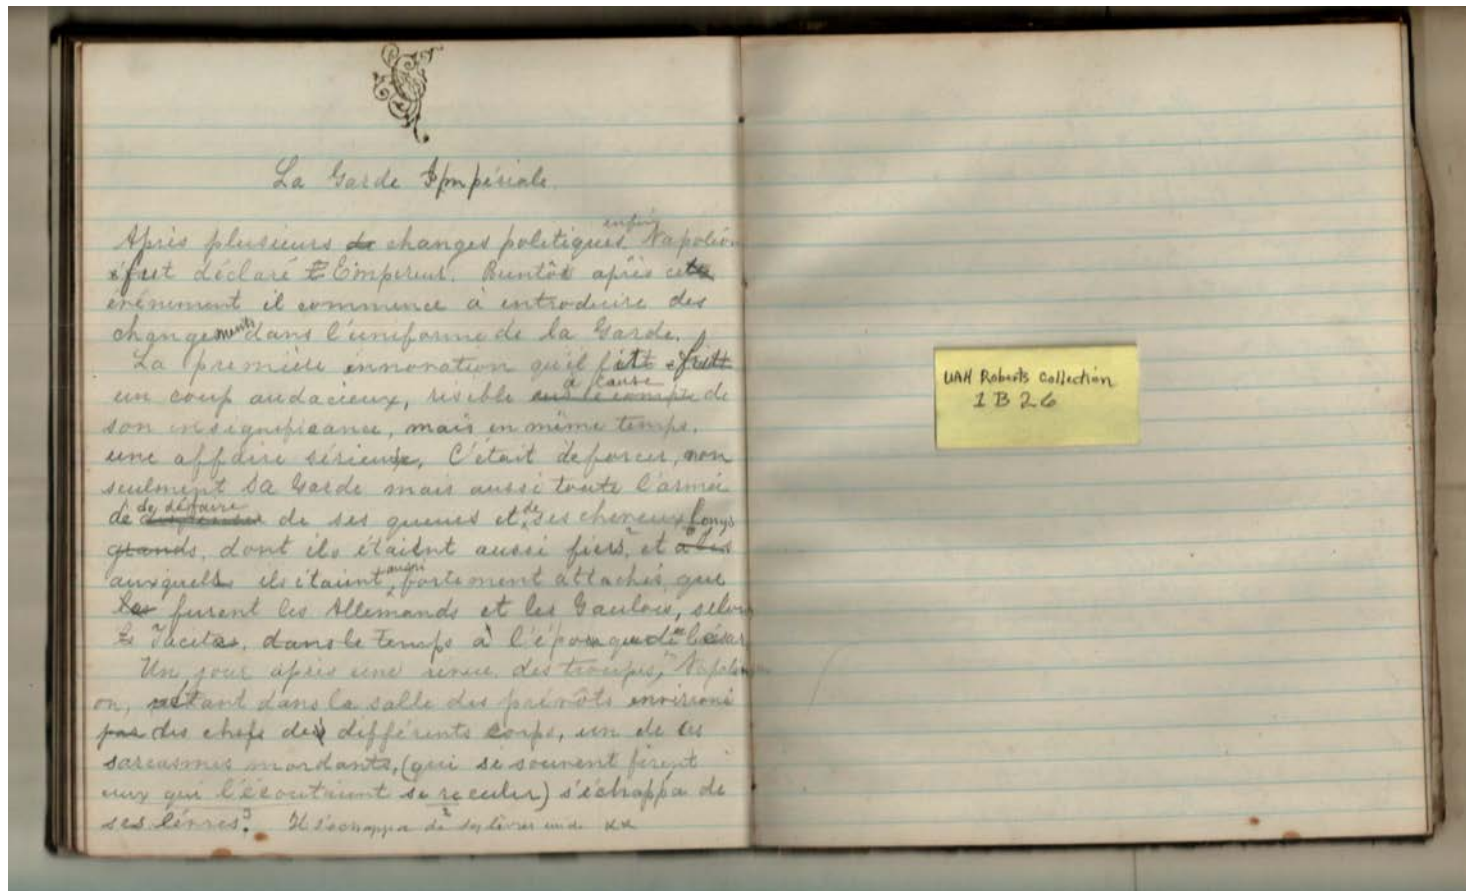 La Garde Impériale.
enfin
Après plusieurs de changes politiques Napoléon
fut déclaré Empereur. Buntôt après cette
événement il commence à introduire des
changements dans l'uniforme de la Garde.
La première innovation qu'il fit fut
un coup audacieux, risible à cause de
son insignificance, mais en même temps,
une affaire sérieuse, C'était de forcer, non
seulment sa Garde mais aussi toute l'armée
de se défaire de ses queues et de ses cheveux longs
grands, dont ils étaient aussi fiers, et à les
auxquells ils étaient aussi fortement attachés que
les furent les Allemands et les Gaulois, selon
Tacite, dans le temps à l'époque de César
Un jour après une revue des troupes, Napole-
on, étant dans la salle des prévôts environé
par des chefs des différents corps, un de ses
sarcasmes mordants, (qui si souvent firent
ceux qui l'écoutaient se reculer) s'échappa de
ses lèvres. Il s'échappa de ses lèvres un de
UAH Roberts Collection
1 B 26